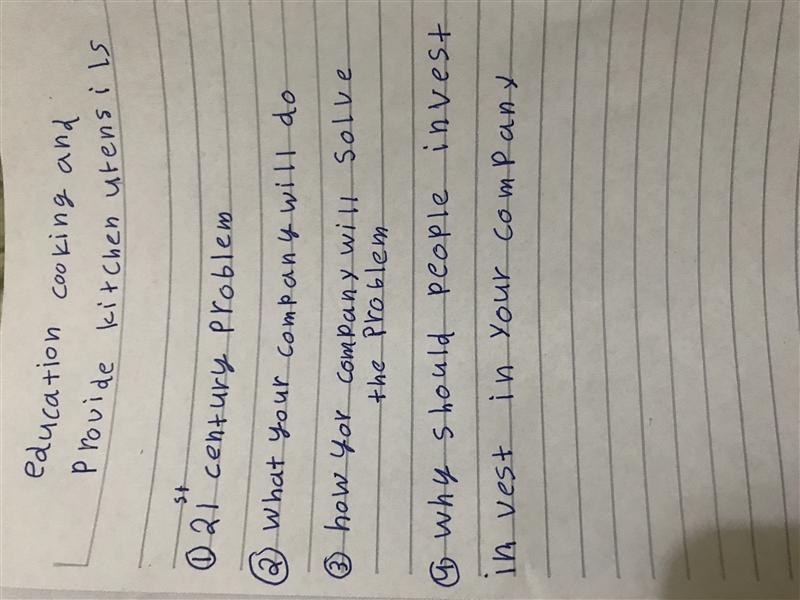 education cooking and
provide kitchen utensils
① 21st century problem
② what your company will do
③ how yor company will solve
the problem
④ why should people invest
in vest in your company